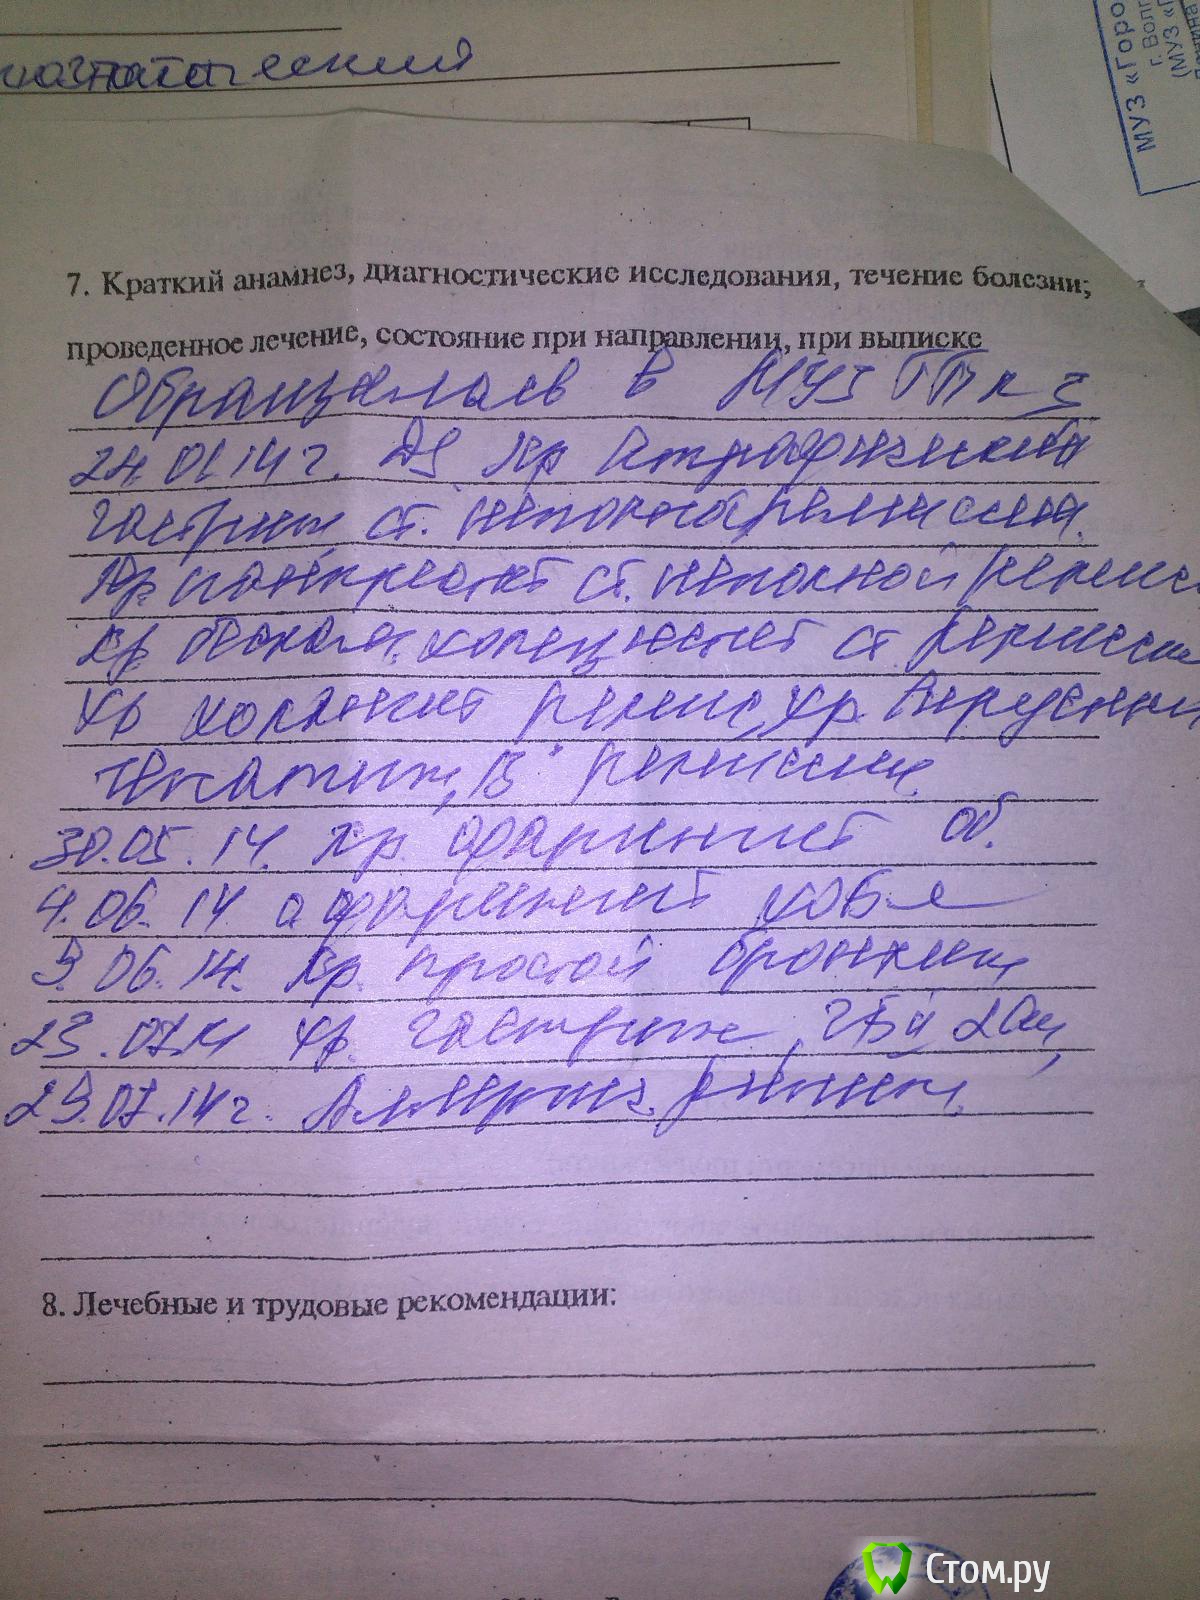 МУЗ «Горо
г. Волг
(МУЗ «Г
7. Краткий анамнез, диагностические исследования, течение болезни;
проведенное лечение, состояние при направлении, при выписке
Обращалась в МУЗ ГП № 3
24.01.14 г. DS Хр атрофический
гастрит ст. неполной ремиссии.
Хр. панкреатит ст. неполной ремисс
Хр. бескам. холецистит ст ремиссии
Хр колит ремис, хр. вирусный
гепатит, В ремиссии
30.05.14. Хр. фарингит об.
4.06.14 о фарингит
3.06.14. Хр. простой бронхит
23.07.14 Хр. гастрит,
23.07.14 г. Аллергич. ринит.
8. Лечебные и трудовые рекомендации:
Стом.ру